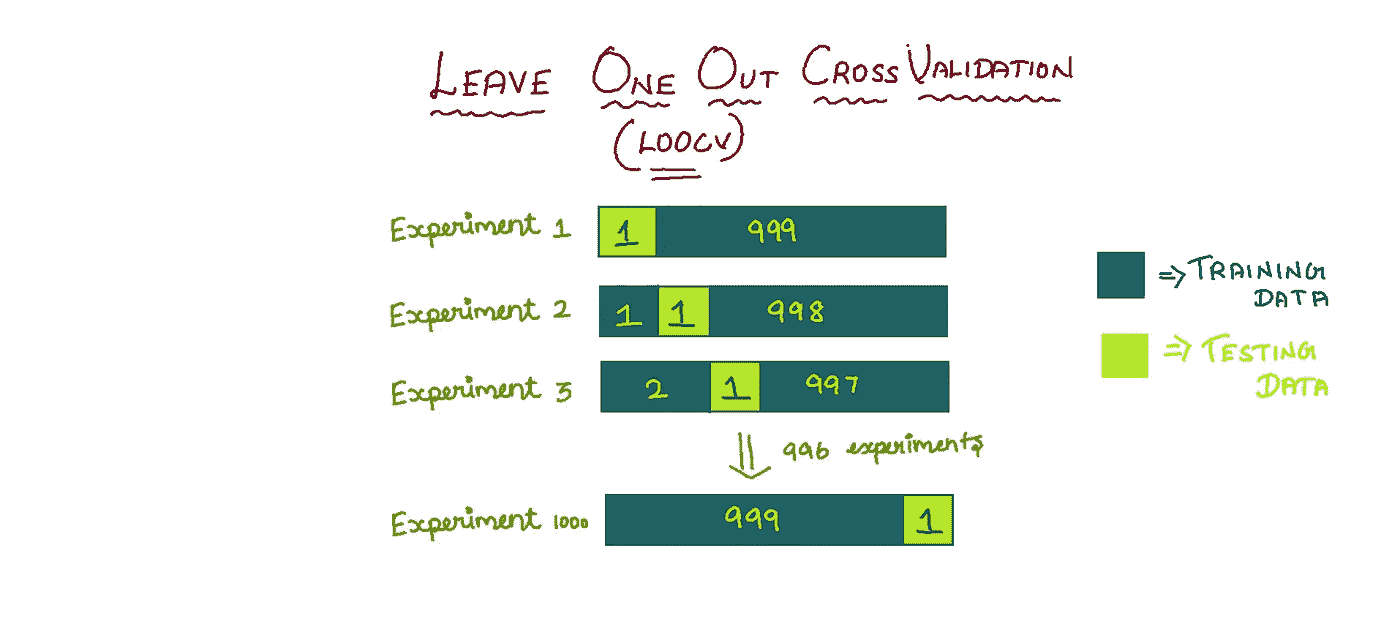 LEAVE ONE OUT CROSS VALIDATION
(LOOCV)
Experiment 1 1 999
Experiment 2 1 1 998
Experiment 3 2 1 997
996 experiments
Experiment 1000 999 1
⇒ TRAINING
DATA
⇒ TESTING
DATA